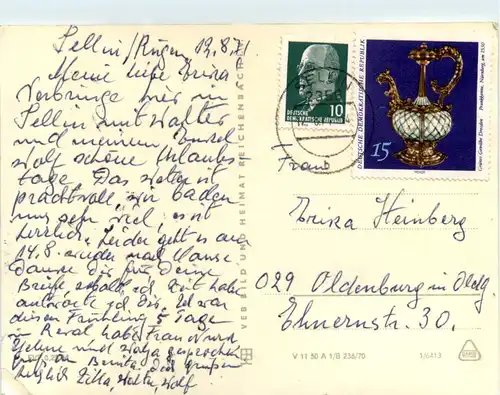 Sellin/Rügen 12.8.71
Meine liebe Erika
Verbringe hier in
Sellin mit Walter
und meinem Enkel
Wolf schöne Urlaubs
tage. Das Wetter ist
prachtvoll, wir baden
nur sehr viel, es ist
herrlich. Leider geht es am
14.8. wieder nach Hause.
Danke dir für Deine
Briefe, sobald ich Zeit habe
antworte ich Dir. Ich war
diesen Frühling 5 Tage
in Reval habe Frau
und gesprochen
Dich grüßen
herzlich Zilla, Walter, Wolf
VEB BILD UND HEIMAT REICHENBACH
10
DEUTSCHE
DEMOKRATISCHE REPUBLIK
DEUTSCHE DEMOKRATISCHE REPUBLIK
15
Prunkkanne, Nürnberg, um 1530
Grünes Gewölbe Dresden
Frau
Erika Heinberg
029 Oldenburg in Oldbg.
Ehnernstr. 30.
V 11 50 A 1/B 236/70
1/6413